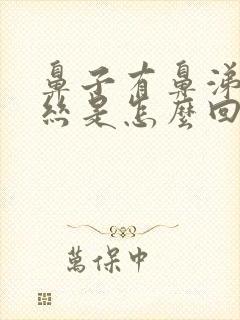 鼻子有鼻涕
絲是怎麼回
萬保中